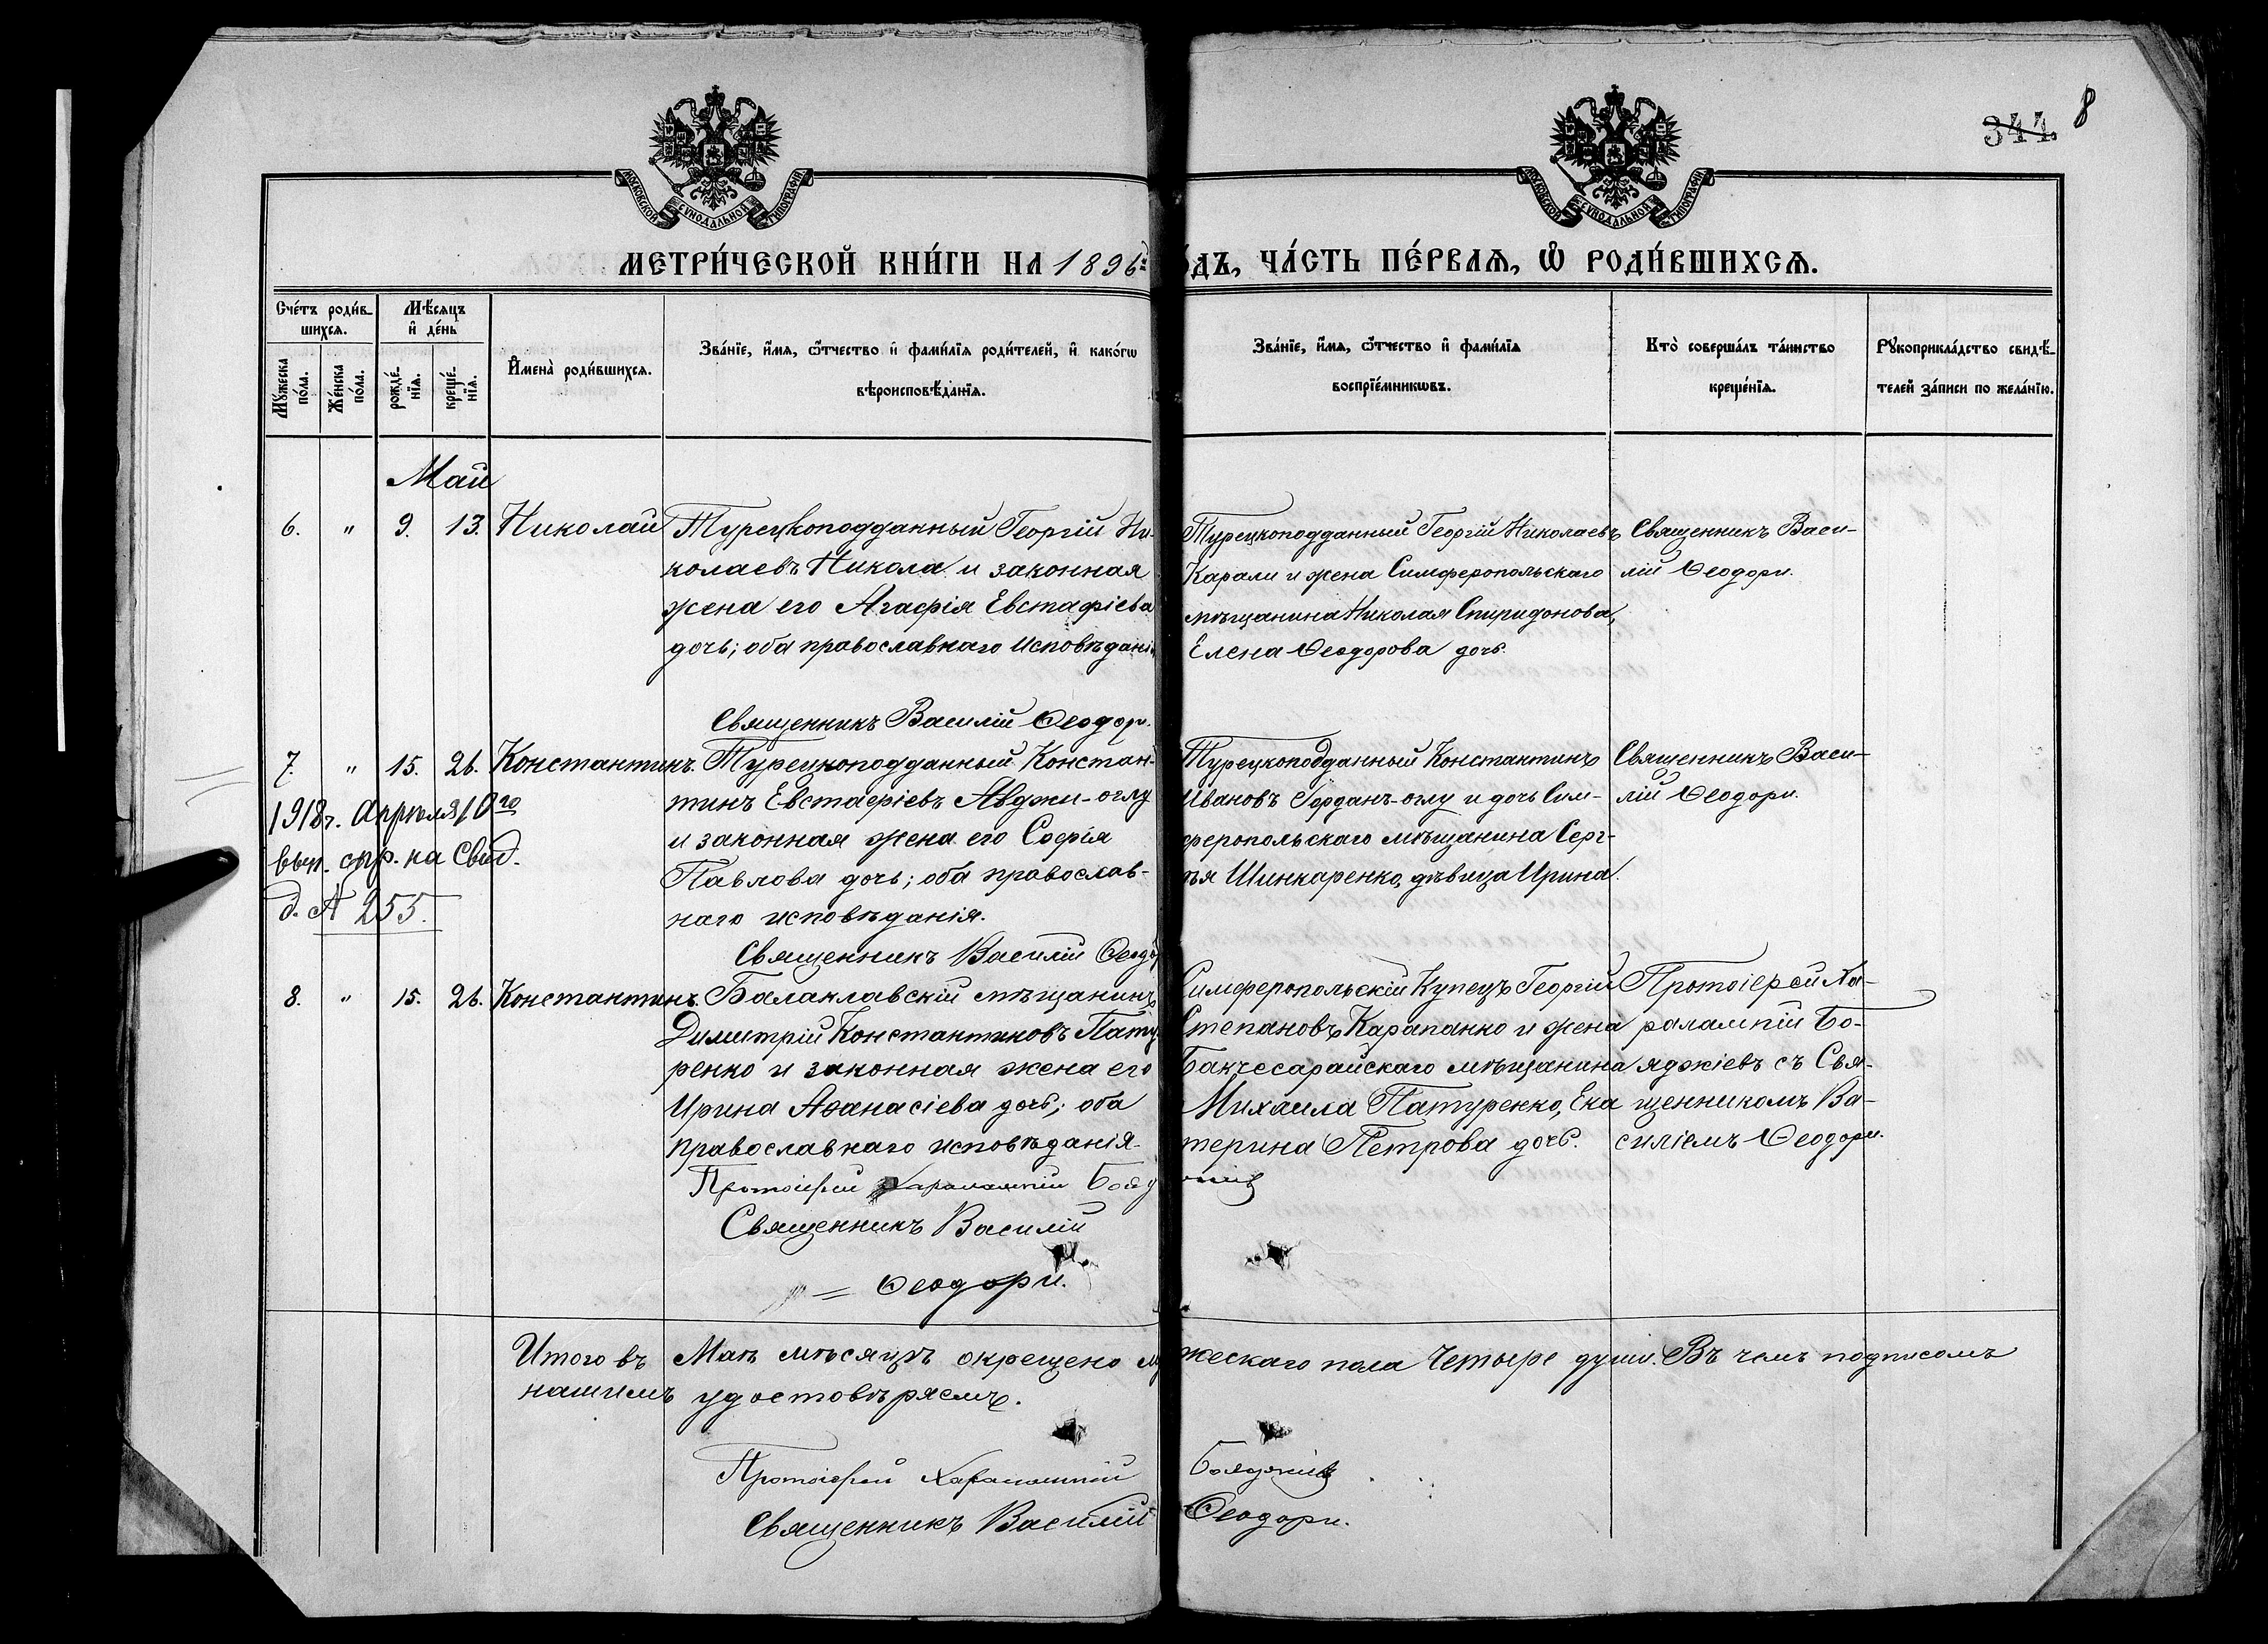 344. 8
МОСКОВСКОЙ СУНОДАЛЬНОЙ ТИПОГРАФІИ
МОСКОВСКОЙ СУНОДАЛЬНОЙ ТИПОГРАФІИ
МЕТРИ́ЧЕСКОЙ КНИ́ГИ НА 1896й
о́дъ, ЧА́СТЬ ПЕ́РВАѦ, Ѡ҆ РОДИ́ВШИХСѦ.
Сче́тъ роди́в-
шихсѧ.
Мѣ́сѧцъ
и҆ де́нь
Мꙋ́жеска
по́ла.
Же́нска
по́ла.
рожде́-
нїѧ.
креще́-
нїѧ.
И҆мена̀ роди́вшихсѧ.
Зва́нїе, и҆́мѧ, ѻ҆́тчество и҆ фами́лїѧ роди́телей, и҆ како́гѡ
вѣроисповѣ́данїѧ.
Зва́нїе, и҆́мѧ, ѻ҆́тчество и҆ фами́лїѧ
воспрїе́мникѡвъ.
Кто̀ соверша́лъ та́инство
креще́нїѧ.
Рꙋкоприкла́дство свидѣ́-
телей за́писи по жела́нїю.
Май
6. " 9. 13. Николай
Турецкоподданный Георгій Ни-
колаевъ Никола и законная
жена его Агафія Евстафіева
дочь; оба православнаго исповѣданія
Священникъ Василій Ѳеодори.
Турецкоподданный Георгій Николаевъ
Карали и жена Симферопольскаго
мѣщанина Николая Спиридонова,
Елена Ѳеодорова дочь.
Священникъ Васи-
лій Ѳеодори.
7. " 15. 26. Константинъ.
1918г. Апрѣля 10го
вып. спр. на Свид.
д. А 255.
Турецкоподданный Констан-
тинъ Евстафіевъ Авджи-оглу
и законная жена его Софія
Павлова дочь; оба православ-
наго исповѣданія.
Священникъ Василій Ѳеодор
Турецкоподданный Константинъ
Ивановъ Іорданъ-оглу и дочь Сим-
феропольскаго мѣщанина Серг-
ѣя Шинкаренко, дѣвица Ирина.
Священникъ Васи-
лій Ѳеодори.
8. " 15. 26. Константинъ.
Балаклавскій мѣщанинъ
Димитрій Константиновъ Пату-
ренко и законная жена его
Ирина Аѳанасіева дочь; оба
православнаго исповѣданія.
Протоіерей Харалампій Бояд
жіевъ
Священникъ Василій
Ѳеодори.
Симферопольскій Купецъ Георгій
Степановъ Карапанко и жена
Бакчесарайскаго мѣщанина
Михаила Патуренко, Ека
терина Петрова дочь.
Протоіерей Ха-
ралампій Бо-
яджіевъ съ Свя-
щенникомъ Ва-
силіемъ Ѳеодори.
Итого въ Маѣ мѣсяцѣ окрещено му
жескаго пола Четыре души. Въ чемъ подписомъ
нашимъ удостовѣряемъ.
Протоіерей Харалампій Бояджіевъ
Священникъ Василій Ѳеодори.